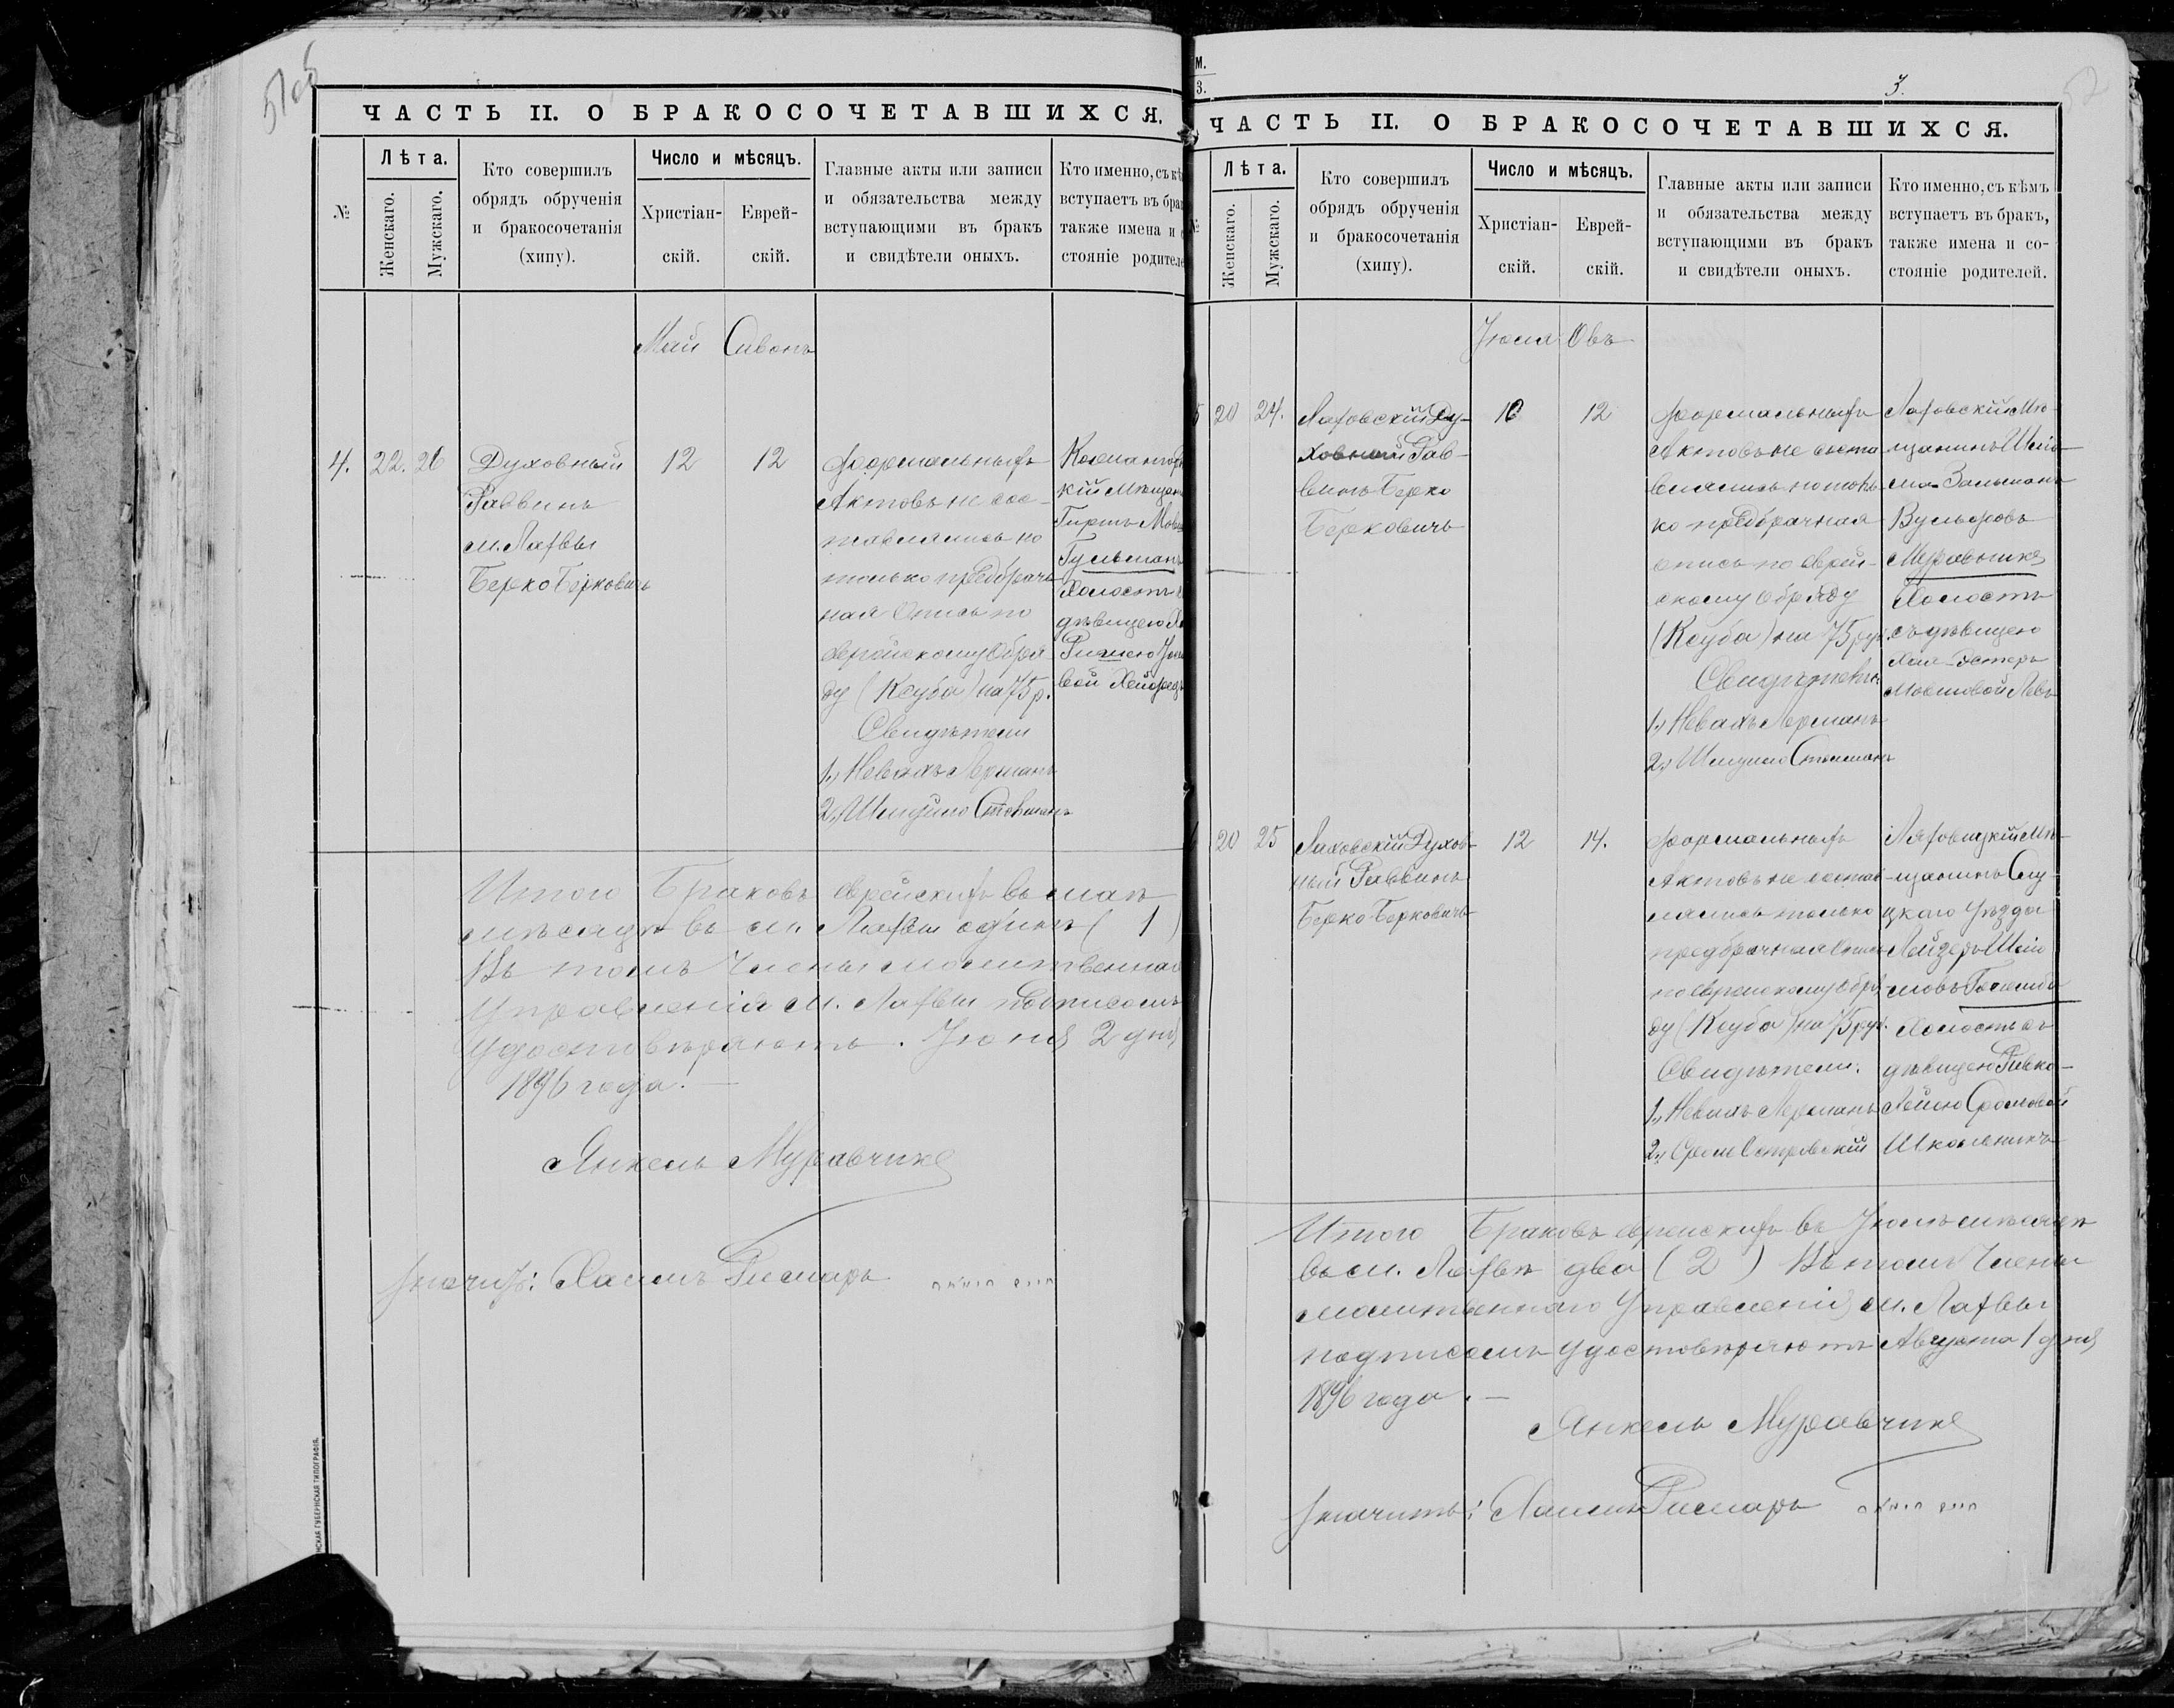 51об
ЧАСТЬ II. О БРАКОСОЧЕТАВШИХСЯ.
№
Лѣта.
Женскаго.
Мужскаго.
Кто совершилъ
обрядъ обрученія
и бракосочетанія
(хипу).
Число и мѣсяцъ.
Христіан-
скій.
Еврей-
скій.
Главные акты или записи
и обязательства между
вступающими въ бракъ
и свидѣтели оныхъ.
Кто именно, съ кѣ
вступаетъ въ брак
также имена и с
стояніе родителе
Май Сивонъ
4. 22. 26
Духовный
Раввинъ
м. Лахвы
Берко Берковичъ
12 12
Формальныхъ
Актовъ не сос-
тавлялись но
только предбрач-
ная Опись по
еврейскому Обря-
ду (Ксуба) на 75 р.
Свидѣтели
1., Невахъ Лерманъ
2., Шмуйло Стольманъ
кій Мѣщан
Гиршъ Мов
Гульманъ
Холостъ
дѣвицею
вой
Итого Браковъ еврейскихъ въ маѣ
мѣсяцѣ въ м. Лахвы одинъ (1)
Въ томъ Члены молитвеннаго
Управленія м. Лахвы подписомъ
Удостовѣряютъ. Іюня 2 дня
1896 года. —
Янкель Муравчикъ
Значитъ: Хаимъ Писмаръ
НСКАЯ ГУБЕРНСКАЯ ТИПОГРАФІЯ.
М.
3.
3.
52
ЧАСТЬ II. О БРАКОСОЧЕТАВШИХСЯ.
№
Лѣта.
Женскаго.
Мужскаго.
Кто совершилъ
обрядъ обрученія
и бракосочетанія
(хипу).
Число и мѣсяцъ.
Христіан-
скій.
Еврей-
скій.
Главные акты или записи
и обязательства между
вступающими въ бракъ
и свидѣтели оныхъ.
Кто именно, съ кѣмъ
вступаетъ въ бракъ,
также имена и со-
стояніе родителей.
Іюля Овъ
5 20 24.
Лаховскій Ду-
ховный Рав-
винъ Берко
Берковичъ
10 12
Формальныхъ
Актовъ не соста
влялись но толь
ко предбрачная
опись по еврей-
скому обряду
(Ксуба) на 75 руб.
Свидѣтели
1., Невахъ Лерманъ
2., Шмуйло Стольманъ
Лаховскій Мѣ-
щанинъ Шлё-
ма-Зальманъ
Вульфовъ
Муравчикъ
Холостъ
съ дѣвицею
Хая-Эстеръ
Мовшовой
20 25
Лаховскій Духов-
ный Раввинъ
Берко Берковичъ
12 14.
Формальныхъ
Актовъ не состав-
лялись только
предбрачная Опись
по еврейскому обря-
ду (Ксуба) на 75 руб.
Свидѣтели:
1., Невахъ Лерманъ
2., Сроль Островскій
Ляховицкій Мѣ-
щанинъ Слу-
цкаго Уѣзда
Лейзеръ Шлё-
мовъ
Холостъ съ
дѣвицею Ривка-
Лейею Сролевой
Школьникъ
Итого Браковъ еврейскихъ въ Іюлѣ мѣсяцѣ
въ м. Лахвѣ два (2) Въ томъ Члены
молитвеннаго Управленія м. Лахвы
подписомъ удостовѣряютъ Августа 1 дня
1896 года. —
Янкель Муравчикъ
Значитъ: Хаимъ Писмаръ